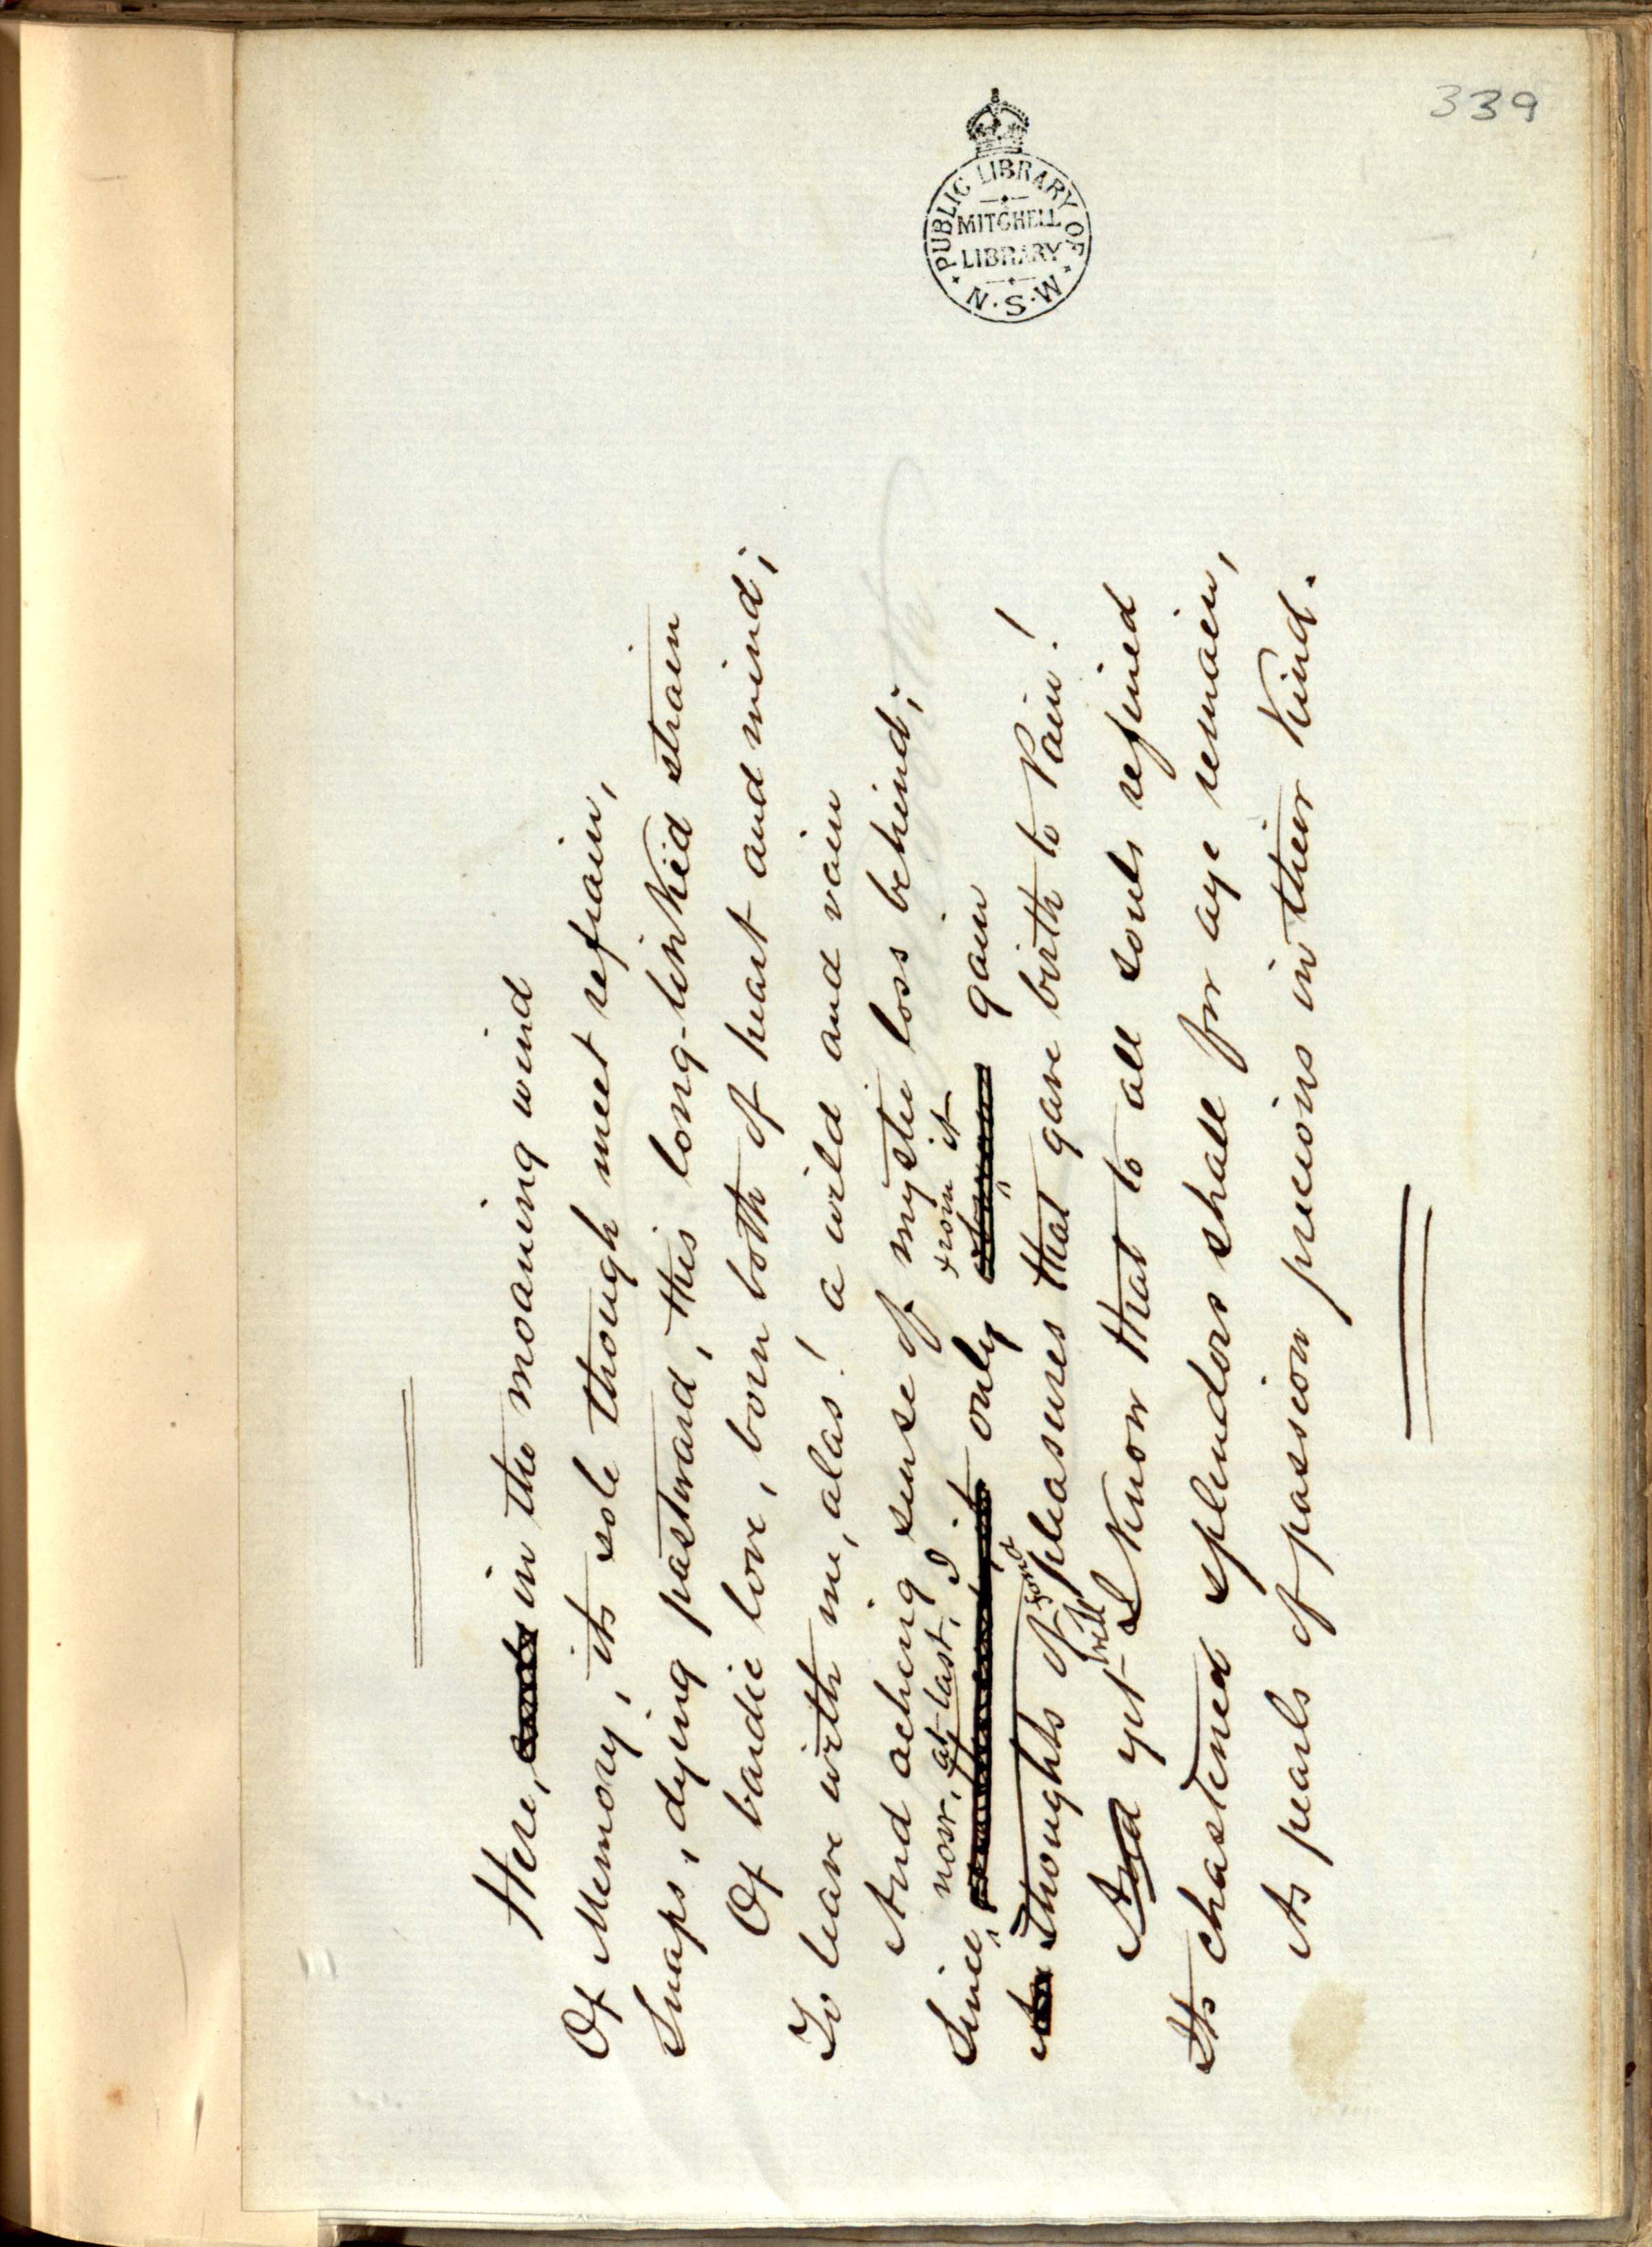 339
PUBLIC LIBRARY OF N.S.W.
MITCHELL
LIBRARY
Here, in the moaning wind
Of Memory, its sole though meet refrain,
Snaps, dying pastward, this long-linkèd strain
Of bardic love, born both of heart and mind;
To leave with me, alas! a wild and vain
And aching sense of mystic loss behind;
Since, now, at last, I only from it gain
Thoughts of fond pleasures that gave birth to Pain!
And yet well I know that to all souls refined
Its chastened splendors shall for aye remain,
As pearls of passion precious in their kind.